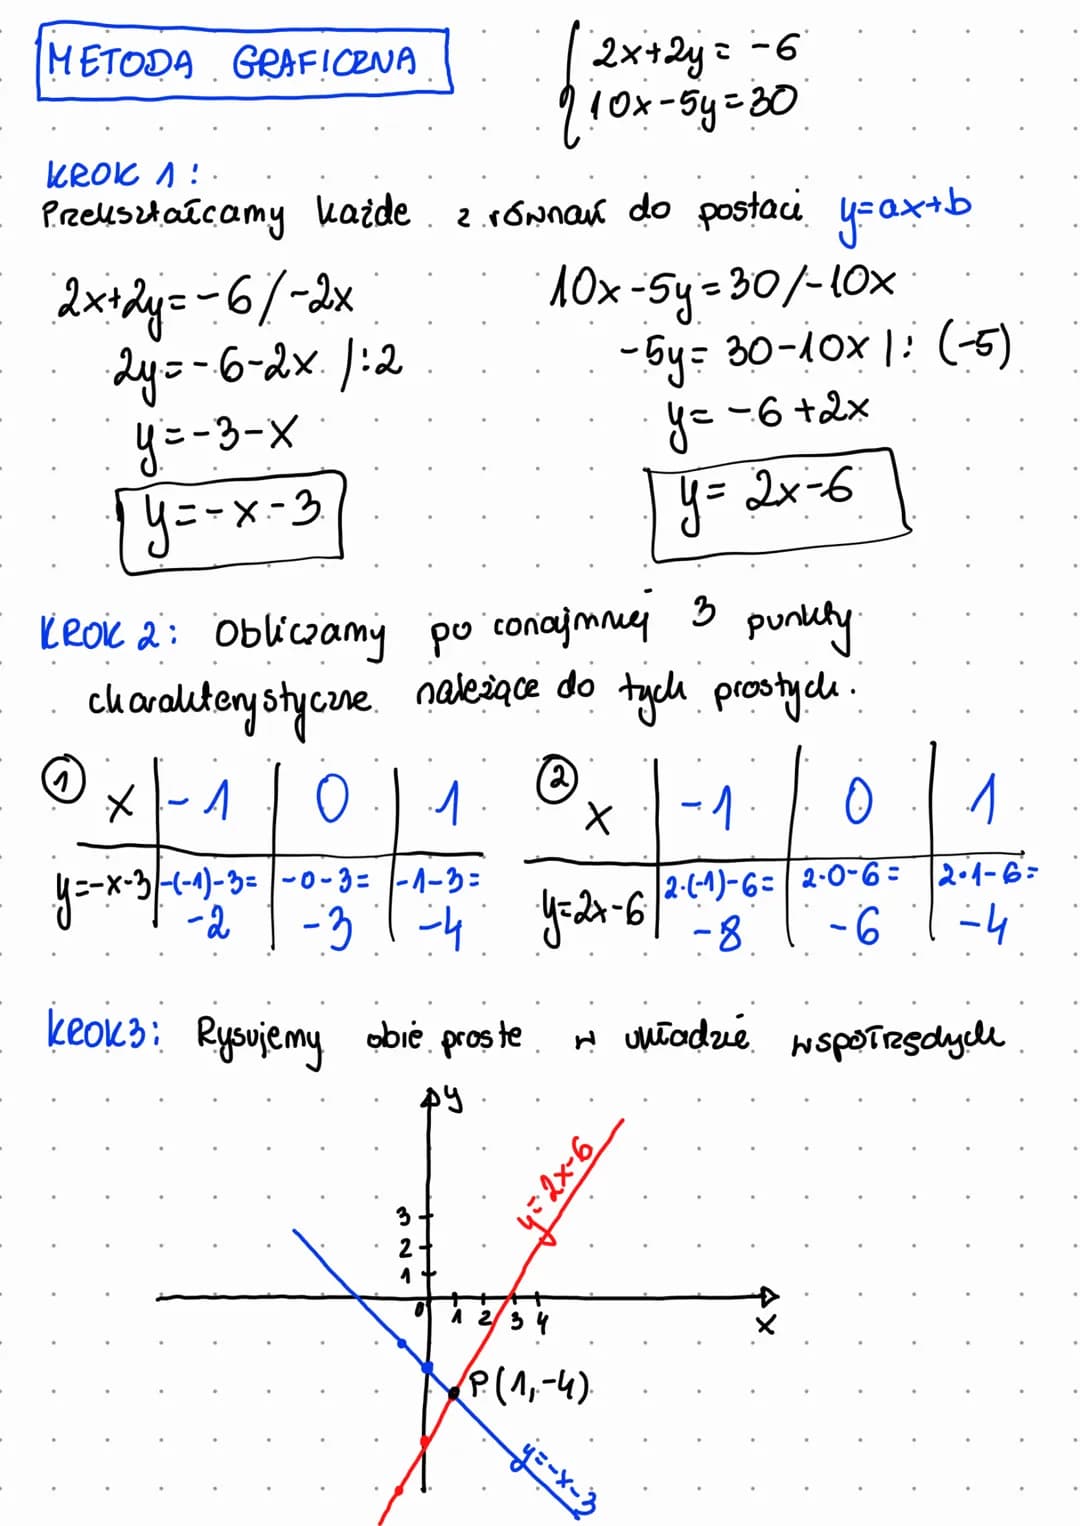 METODA GRAFICZNA
2x+2y=-6
10x-5y=30
KROK 1:
Przekształcamy każde z równań do postaci y=ax+b
2x+2y=-6/-2x
2y=-6-2x |:2
y=-3-x
y=-x-3
10x-5y=30/-10x
-5y=30-10x |:(-5)
y=-6+2x
y=2x-6
KROK 2: Obliczamy po conajmniej 3 punkty
charakterystyczne należące do tych prostych.
1 x -1 0 1
y=-x-3 -(-1)-3= -0-3= -1-3=
-2 -3 -4
2 x -1 0 1
y=2x-6 2·(-1)-6= 2·0-6= 2·1-6=
-8 -6 -4
KROK3: Rysujemy obie proste w układzie współrzędych
y
y=2x-6
3
2
1
0 1 2 3 4
x
P(1,-4)
y=-x-3